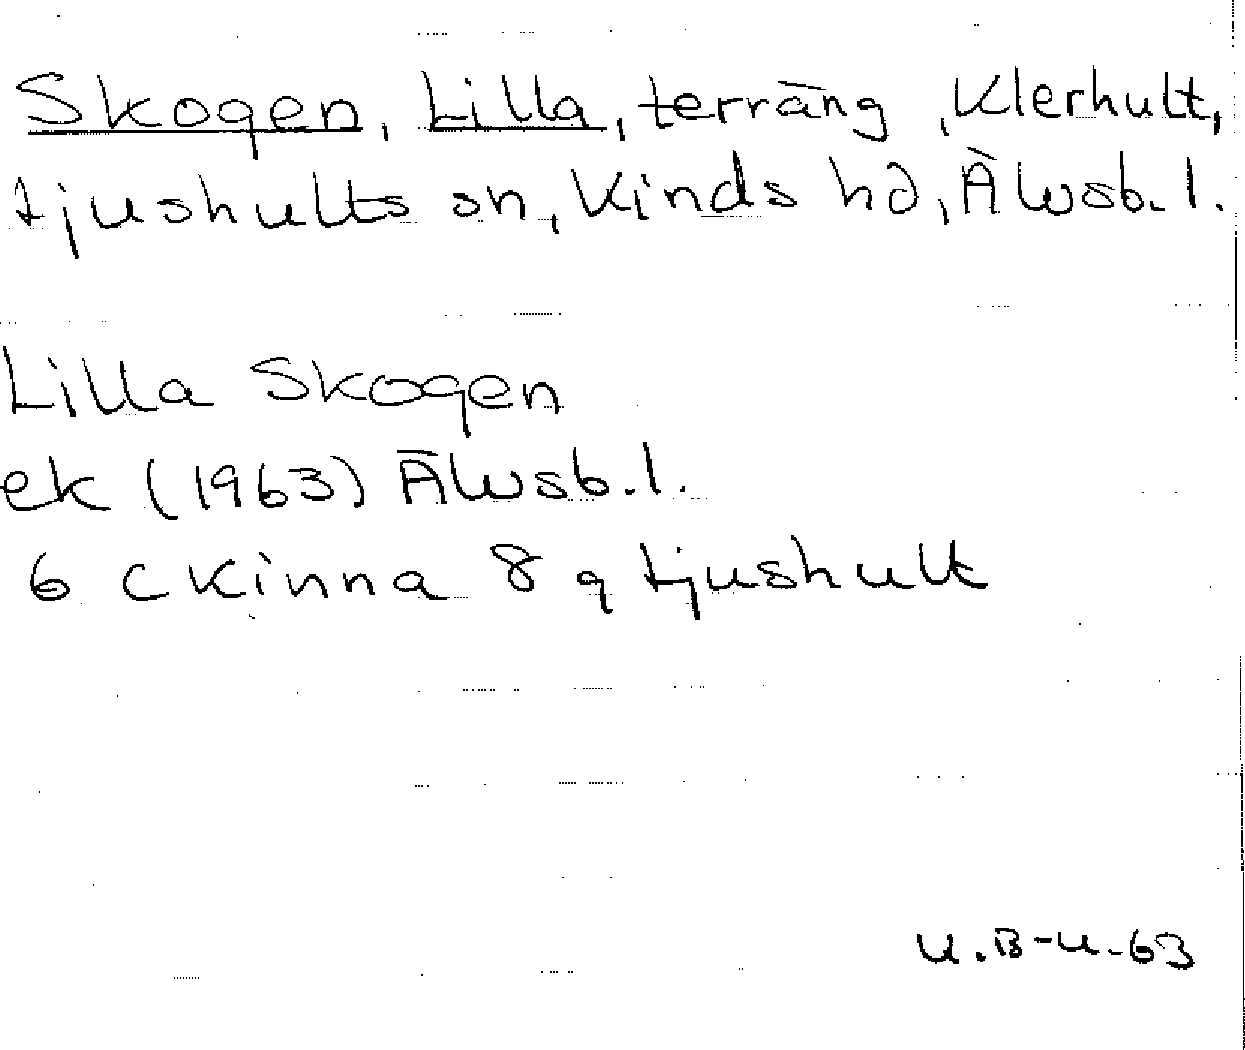 Skogen, Lilla, terräng, Klerhult,
tjushults sn, Kinds hd, Älvsb. l.
Lilla Skogen
ek (1963) Älvsb. l.
6 c Kinna 8 g tjushult
U.B-u-63